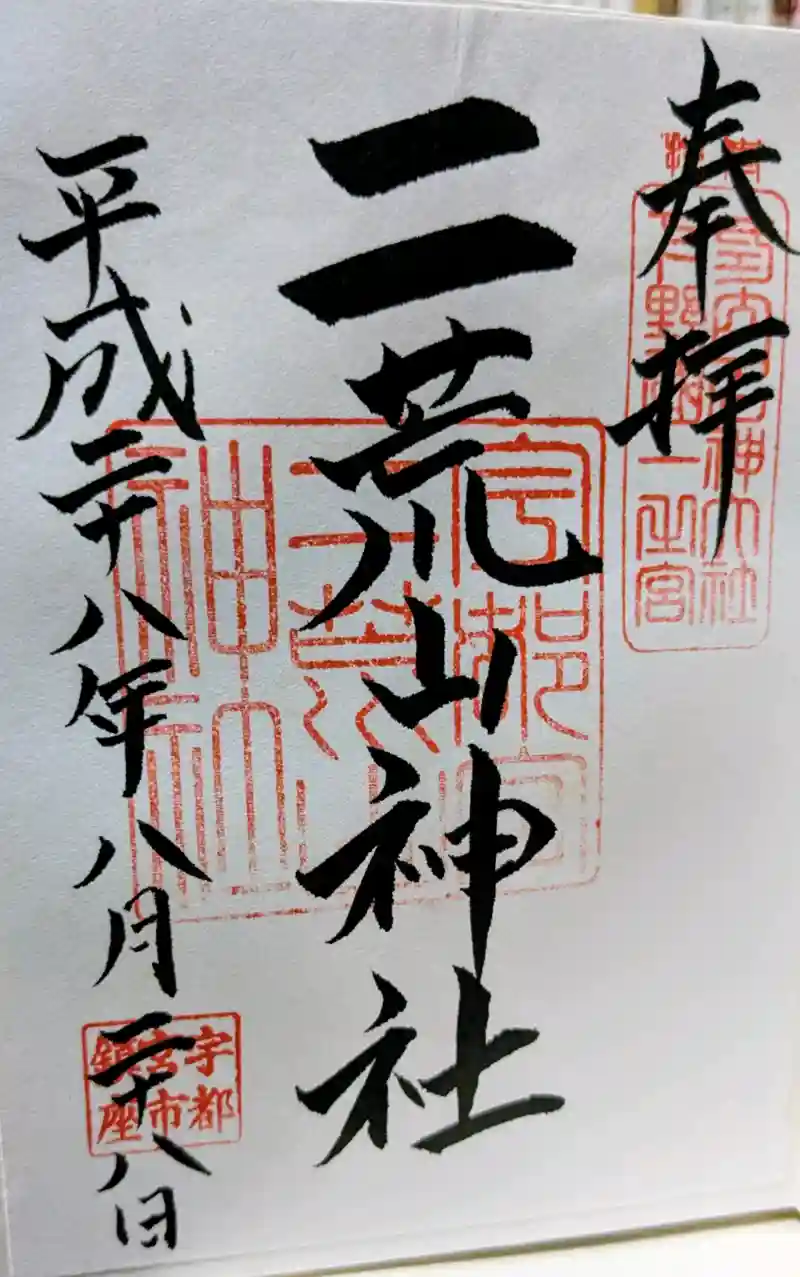 奉拝
式内名神大社
下野國一之宮
二荒山神社
宇都宮
二荒山
神社
平成二十八年八月二十八日
宇都
宮市
鎮座